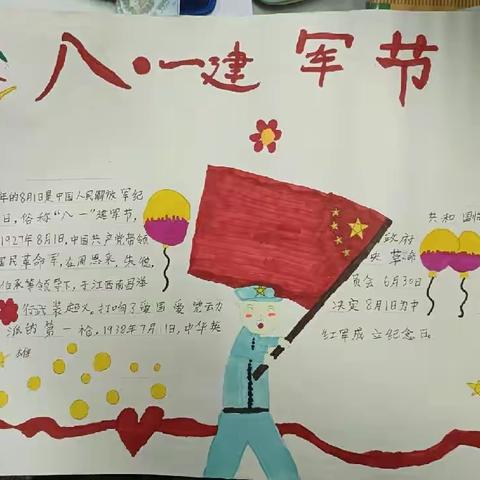 八·一建军节
年的8月1日是中国人民解放军纪
日,俗称"八一"建军节,
1927年8月1日,中国共产党带领
国民革命军,在周恩来,朱德,
伯承等领导下,于江西南昌举
武装起义,打响了
派的第一枪,1938年7月1日,中华英
雄
共和国临
政府
员会 6月30日
决定8月1日为中
红军成立纪念日